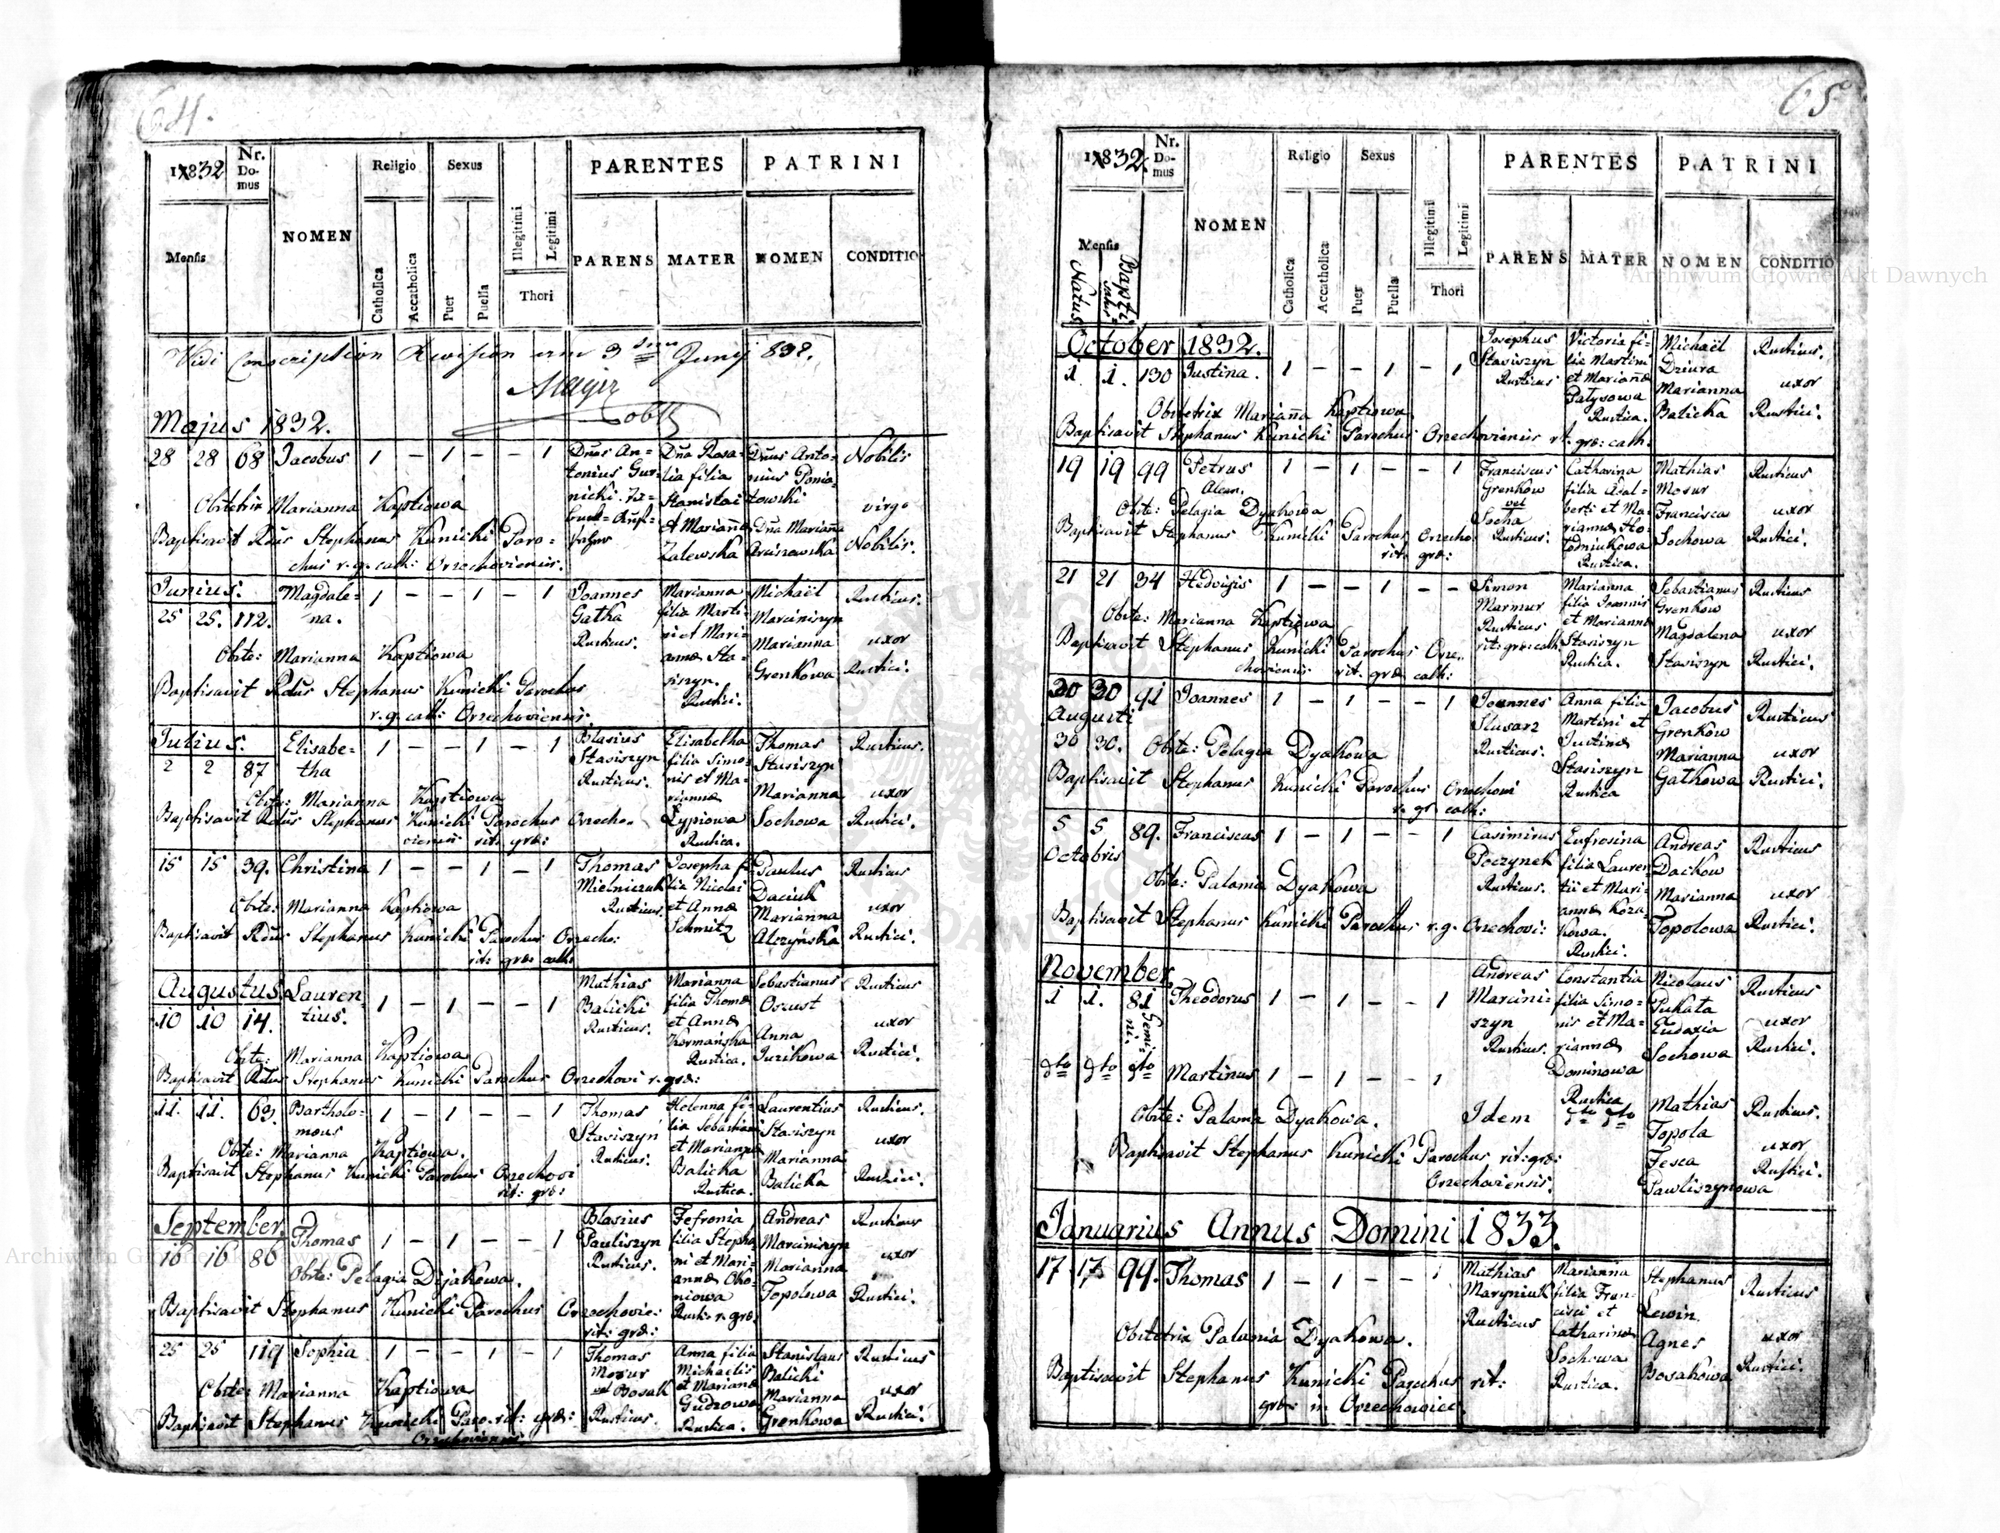 64.
1832
Nr. Domus
Mensis
NOMEN
Religio
Catholica
Accatholica
Sexus
Puer
Puella
Illegitimi
Legitimi
Thori
PARENTES
PARENS
MATER
PATRINI
NOMEN
CONDITIO
Vidi Conscription Revision am 3 Juny 832.
Majus 1832.
28 28 68 Jacobus 1 – 1 – – 1
Dnus Antonius Gurnicki
Dna Rosalia filia Stanislai et Mariañæ Zalewska
Dnus Antonius Poniatowski
Dna Marianna
Nobilis
virgo
Nobilis.
Obstetrix Marianna Kaptiowa
Baptisavit Rdus Stephanus Kunicki Parochus r. g. cath: Orzechoviensis.
Junius.
25 25. 112. Magdalena. 1 – – 1 – 1
Joannes Gatka Rusticus.
Marianna filia Martini et Mariannæ Stasiszyn. Rustici.
Michaël Marciniszyn
Marianna Grenkowa
Rusticus.
uxor
Rustici.
Obste: Marianna Kaptiowa
Baptisavit Rdus Stephanus Kunicki Parochus
r. g. cath: Orzechoviensis.
Julius.
2 2 87 Elisabetha 1 – – 1 – 1
Blasius Stasiszyn Rusticus.
Elisabetha filia Simonis et Mariannæ Lypiowa Rustica.
Thomas Stasiszyn
Marianna Sochowa
Rusticus.
uxor
Rustici.
Obste: Marianna Kaptiowa
Baptisavit Rdus Stephanus Kunicki Parochus Orzechoviensis rit: græ:
15 15 39. Christina 1 – – 1 – 1
Thomas Mielniczuk Rusticus.
Josepha filia Nicolai et Annæ Schmitz
Paulus Daciuk
Marianna Alczyńska
Rusticus
uxor
Rustici.
Obste: Marianna Kaptiowa
Baptisavit Rdus Stephanus Kunicki Parochus Orzecho:
rit: græ: cath:
Augustus.
10 10 14. Laurentius. 1 – 1 – – 1
Mathias Balicki Rusticus.
Marianna filia Thomæ et Annæ Kormańska Rustica.
Sebastianus Oszust
Anna Jurikowa
Rusticus
uxor
Rustici.
Obste: Marianna Kaptiowa
Baptisavit Rdus Stephanus Kunicki Parochus Orzechovi r. græ:
11. 11. 63. Bartholomeus 1 – 1 – – 1
Thomas Stasiszyn Rusticus.
Helenna filia Sebastiani et Mariannæ Balicka Rustica.
Laurentius Stasiszyn
Marianna Balicka
Rusticus.
uxor
Rustici.
Obste: Marianna Kaptiowa.
Baptisavit Stephanus Kunicki Parochus Orzechovi
rit: græ:
September.
16 16 86 Thomas 1 – 1 – – 1
Blasius Pauliszyn Rusticus.
Fefronia filia Stephani et Mariannæ Rusti: r. græ.
Andreas Marciniszyn
Marianna Topolowa
Rusticus
uxor
Rustici.
Obste: Pelagia Dyakowa.
Baptisavit Stephanus Kunicki Parochus Orzechovie:
rit: græ:
25 25 119 Sophia 1 – – 1 – 1
Thomas Mosur vel Bosak Rusticus.
Anna filia Michaelis et Mariannæ Gudzowa Rustica.
Stanislaus Balicki
Marianna Grenkowa
Rusticus
uxor
Rustici.
Obste: Marianna Kaptiowa
Baptisavit Stephanus Kunicki Paro. rit: græ:
Orzechoviensis.
65
1832.
Nr. Domus
Mensis
Natus
Baptisatus
NOMEN
Religio
Catholica
Accatholica
Sexus
Puer
Puella
Illegitimi
Legitimi
Thori
PARENTES
PARENS
MATER
PATRINI
NOMEN
CONDITIO
October 1832.
1. 1. 130 Justina. 1 – – 1 – 1
Josephus Stasiszyn Rusticus
Victoria filia Martini et Mariañæ Patysowa Rustica.
Michaël Dziura
Marianna Balicka
Rusticus.
uxor
Rustici.
Obstetrix Mariaña Kaptiowa
Baptisavit Stephanus Kunicki Parochus Orzechoviensis rit. græ: cath.
19 19 99 Petrus 1 – 1 – – 1
Franciscus Grenkow vel Socha Rusticus.
Catharina filia Adalberti et Mariannæ Rustica.
Mathias Mosur
Francisca Sochowa
Rusticus
uxor
Rustici.
Obste: Pelagia Dyakowa
Baptisavit Stephanus Kunicki Parochus Orzecho:
rit: græ:
21 21 34 Hedvigis 1 – – 1 – 1
Simon Marmur Rusticus rit: græ: cath
Marianna filia Joannis et Mariannæ Stasiszyn Rustica.
Sebastianus Grenkow
Magdalena Stasiszyn
Rusticus
uxor
Rustici.
Obste: Marianna Kaptiowa
Baptisavit Stephanus Kunicki Parochus Orzechoviensis rit. græ cath:
30 30 91 Joannes 1 – 1 – – 1
Augusti
30 30.
Joannes Slusarz Rusticus.
Anna filia Martini et Justinæ Stasiszyn Rustica
Jacobus Grenkow
Marianna Gatkowa
Rusticus
uxor
Rustici.
Obste: Pelagia Dyakowa
Baptisavit Stephanus Kunicki Parochus Orzechovi
r. gr. cath:
5 5 89. Franciscus 1 – 1 – – 1
Octobris
Casimirus Poczynek Rusticus.
Eufrosina filia Laurentii et Mariannæ Kozakowa. Rustici.
Andreas Dackow
Marianna Topolowa
Rusticus
uxor
Rustici.
Obste: Palania Dyakowa
Baptisavit Stephanus Kunicki Parochus r. g. Orzechovi:
November
1 1. 81 Theodorus 1 – 1 – – 1
Gemini.
Andreas Marciniszyn Rusticus.
Constantia filia Simonis et Mariannæ Dominowa Rustica
Nicolaus Pukata
Eudoxia Sochowa
Rusticus
uxor
Rustici.
dto dto dto Martinus 1 – 1 – 1
Idem
dto dto
Mathias Topola
Tesca Pawliszynowa
Rusticus.
uxor
Rustici.
Obste: Palania Dyakowa.
Baptisavit Stephanus Kunicki Parochus rit: græ:
Orzechoviensis.
Januarius Annus Domini 1833.
17 17 99. Thomas 1 – 1 – – 1
Mathias Maryniuk Rusticus
Marianna filia Francisci et Catharinæ Sochowa Rustica.
Stephanus Lewin.
Agnes Bosakowa
Rusticus
uxor
Rustici.
Obstetrix Palania Dyakowa.
Baptisavit Stephanus Kunicki Parochus rit:
græ: in Orzechowice.
Archiwum Główne Akt Dawnych
Archiwum Główne Akt Dawnych